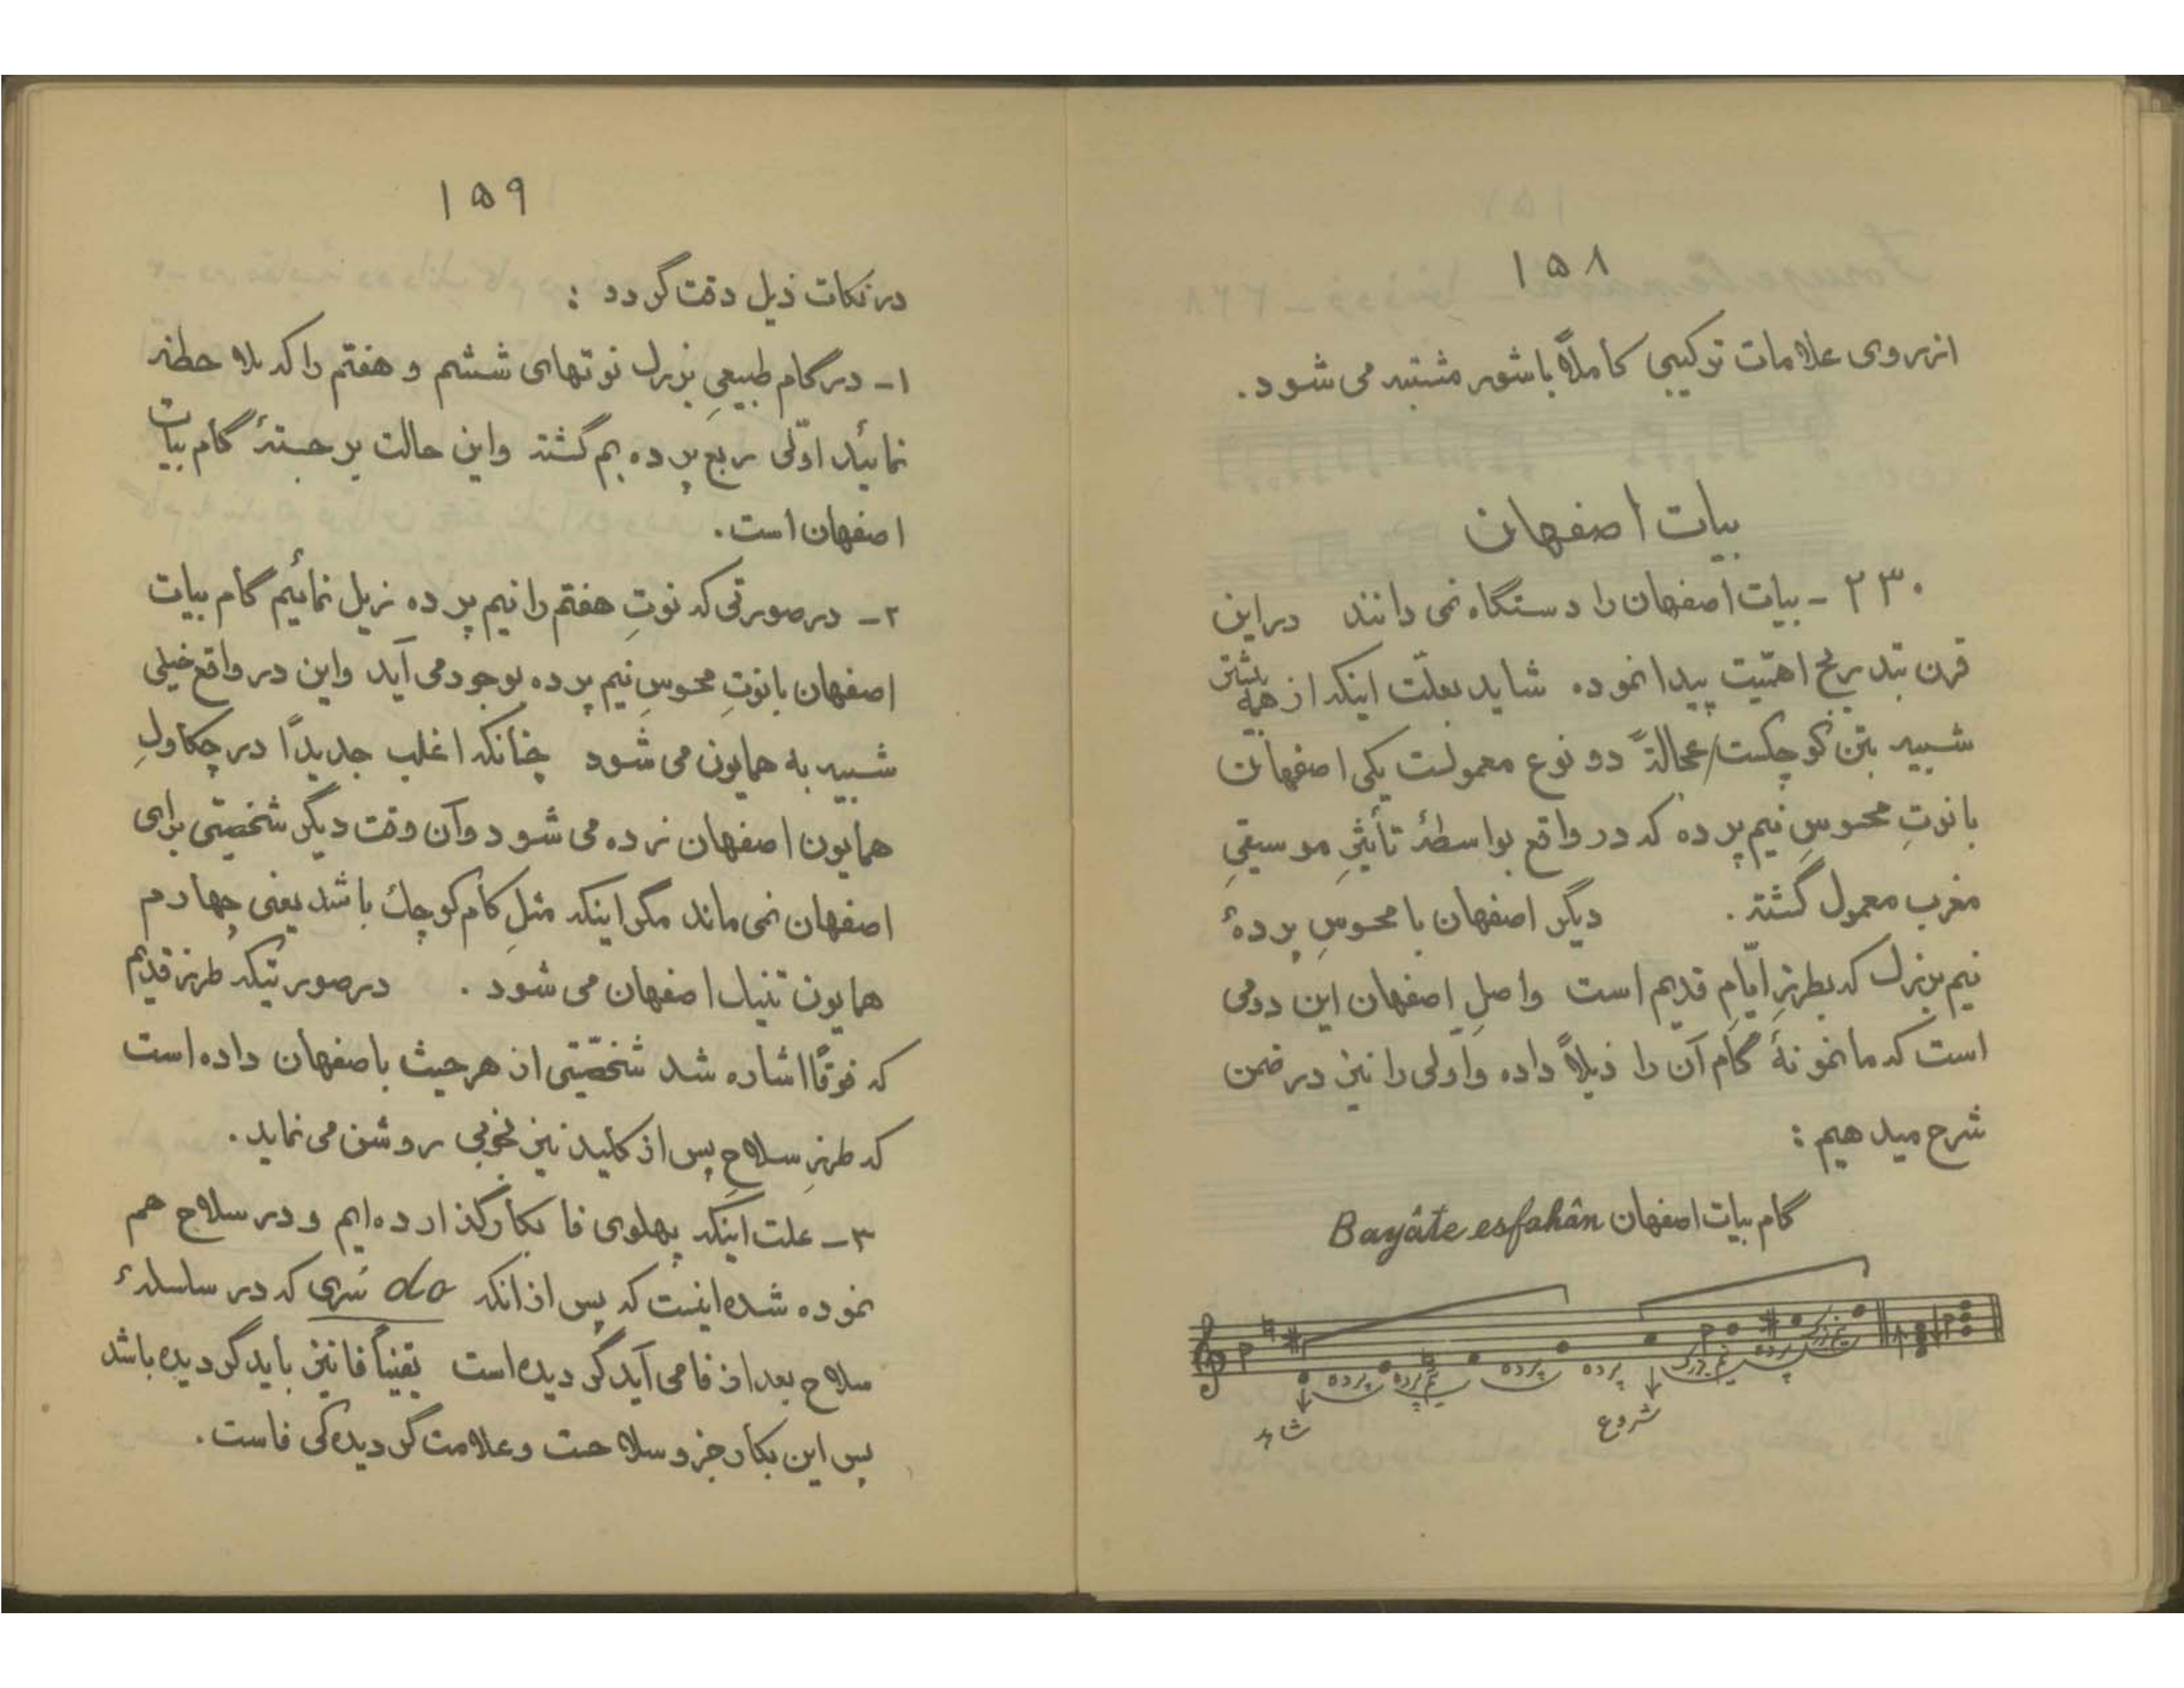 ۱۵۸
از روی علامات ترکیبی کاملاً با شور مشتبه می شود.
بیات اصفهان
۲۳۰ - بیات اصفهان را دستگاه نمی دانند در این
قرن بتدریج اهمّیت پیدا نموده شاید بعلّت اینکه از همه بیشتر
شبیه بتن کوچکست/عجالةً دو نوع معمولست یکی اصفهان
با نوتِ محسوسِ نیم پرده که در واقع بواسطهٔ تأثیرِ موسیقیِ
مغرب معمول گشته. دیگر اصفهان با محسوسِ پردهٔ
نیم بزرگ که بطرزِ ایّامِ قدیم است و اصلِ اصفهان این دومی
است که ما نمونهٔ گام آن را ذیلاً داده و اولی را نیز در ضمن
شرح میدهیم :
گام بیات اصفهان Bayâte esfahân
پرده نیم پرده پرده پرده نیم بزرگ پرده نیم بزرگ
شاهد شروع
۱۵۹
در نکات ذیل دقت گردد :
۱- در گام طبیعیِ بزرگ نوتهای ششم و هفتم را که ملاحظه
نمائید اوّلی ربع پرده بم گشته و این حالت برجستهٔ گام بیات
اصفهان است.
۲- در صورتی که نوتِ هفتم را نیم پرده زیل نمائیم گام بیات
اصفهان با نوتِ محسوسِ نیم پرده بوجود می آید و این در واقع خیلی
شبیه به همایون می شود چنانکه اغلب جدیداً در چکاولِ
همایون اصفهان زده می شود و آن وقت دیگر شخصیّتی برای
اصفهان نمی ماند مگر اینکه مثلِ گام کوچک باشد یعنی چهارم
همایون تنیک اصفهان می شود. در صورتیکه طرز قدیم
که فوقاً اشاره شد شخصّیّتی از هر حیث باصفهان داده است
که طرزِ سلاحِ پس از کلید نیز بخوبی روشن می نماید.
۳- علت اینکه پهلوی فا بکار گذارده ایم و در سلاح هم
نموده شده اینست که پس از انکه do سری که در سلسلهٔ
سلاح بعد از فا می آید گردیده است یقیناً فا نیز باید گردیده باشد
پس این بکار جزو سلاحست و علامت گردیده کی فاست.